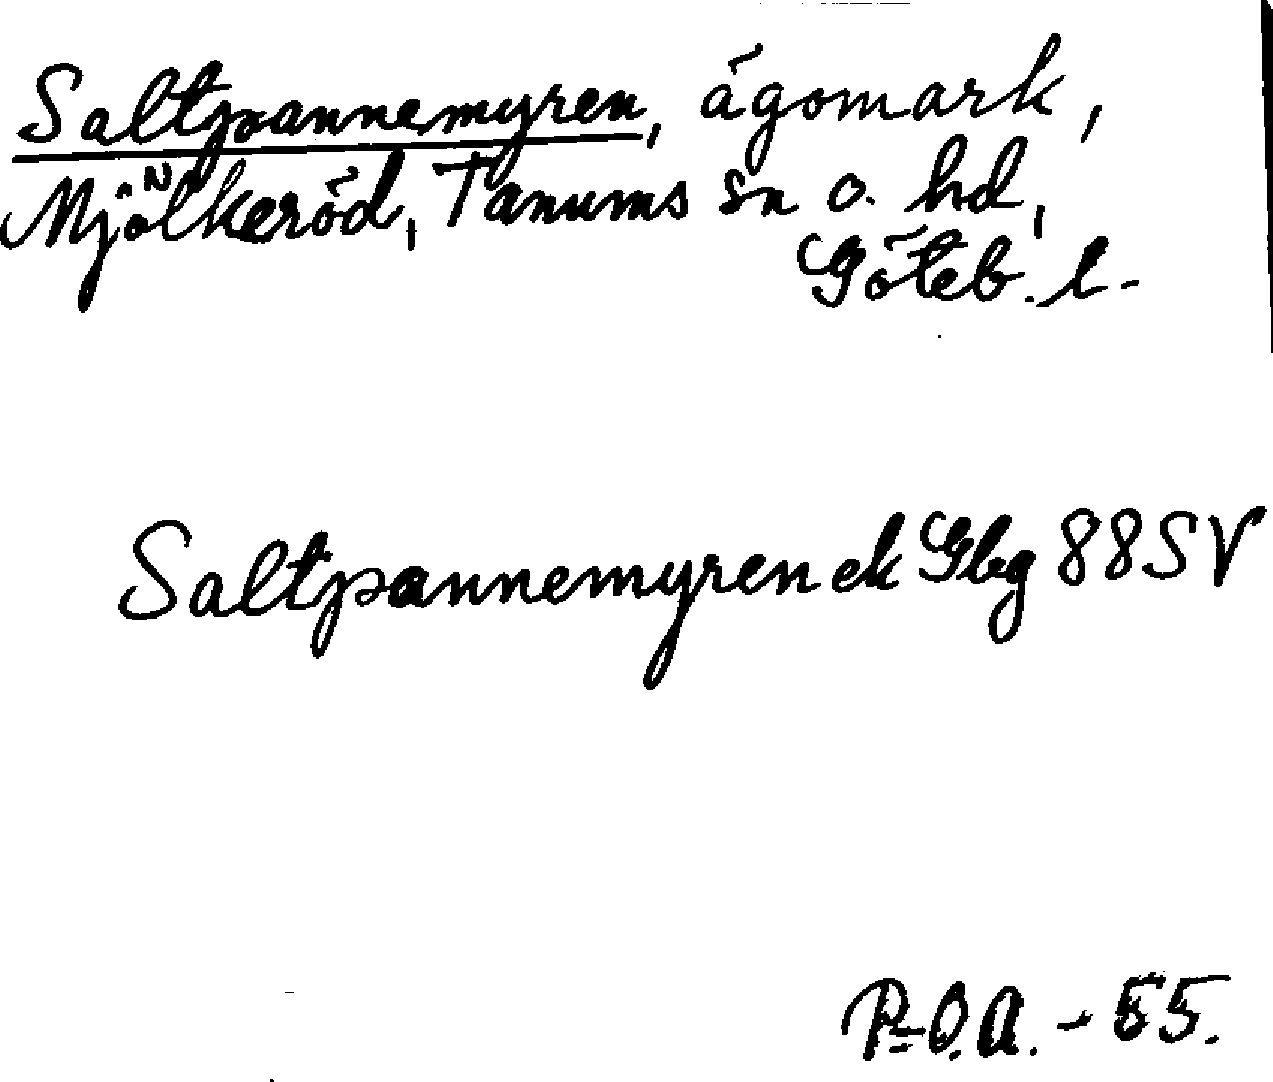 Saltpannemyren, ägomark,
Mjölkeröd, Tanums sn o. hd,
Göteb. l.
Saltpannemyren ek Gbg 88 SV
P-O.A. - 55.